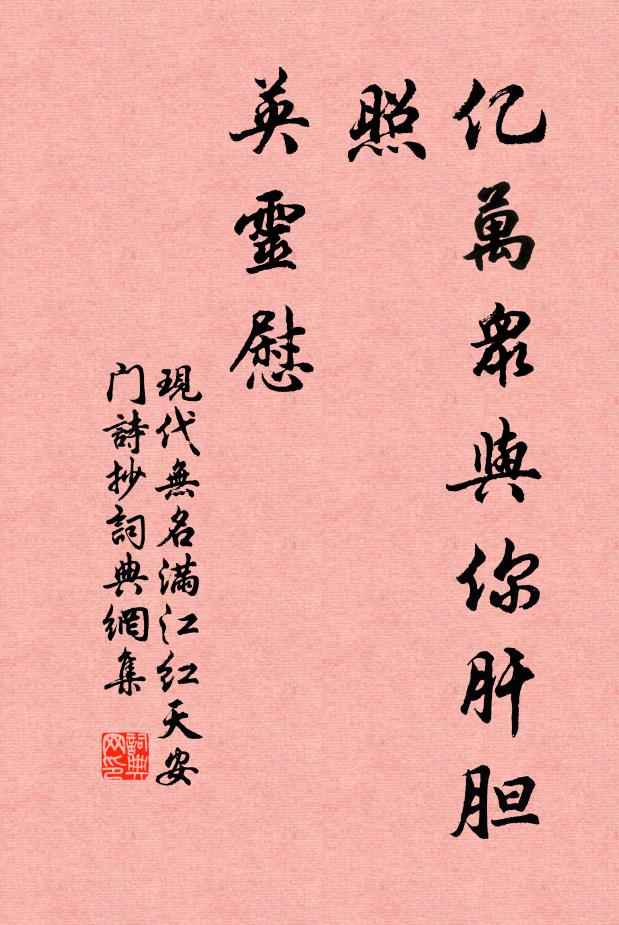 亿萬眾與你肝胆
照
英靈慰
現代無名滿江红天安
门詩抄詞典網集
詞典
网印